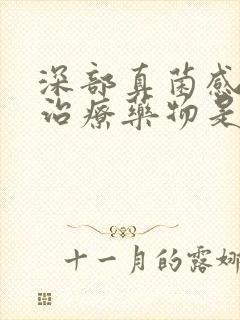 深部真菌感
治療藥物是
十一月的露娜